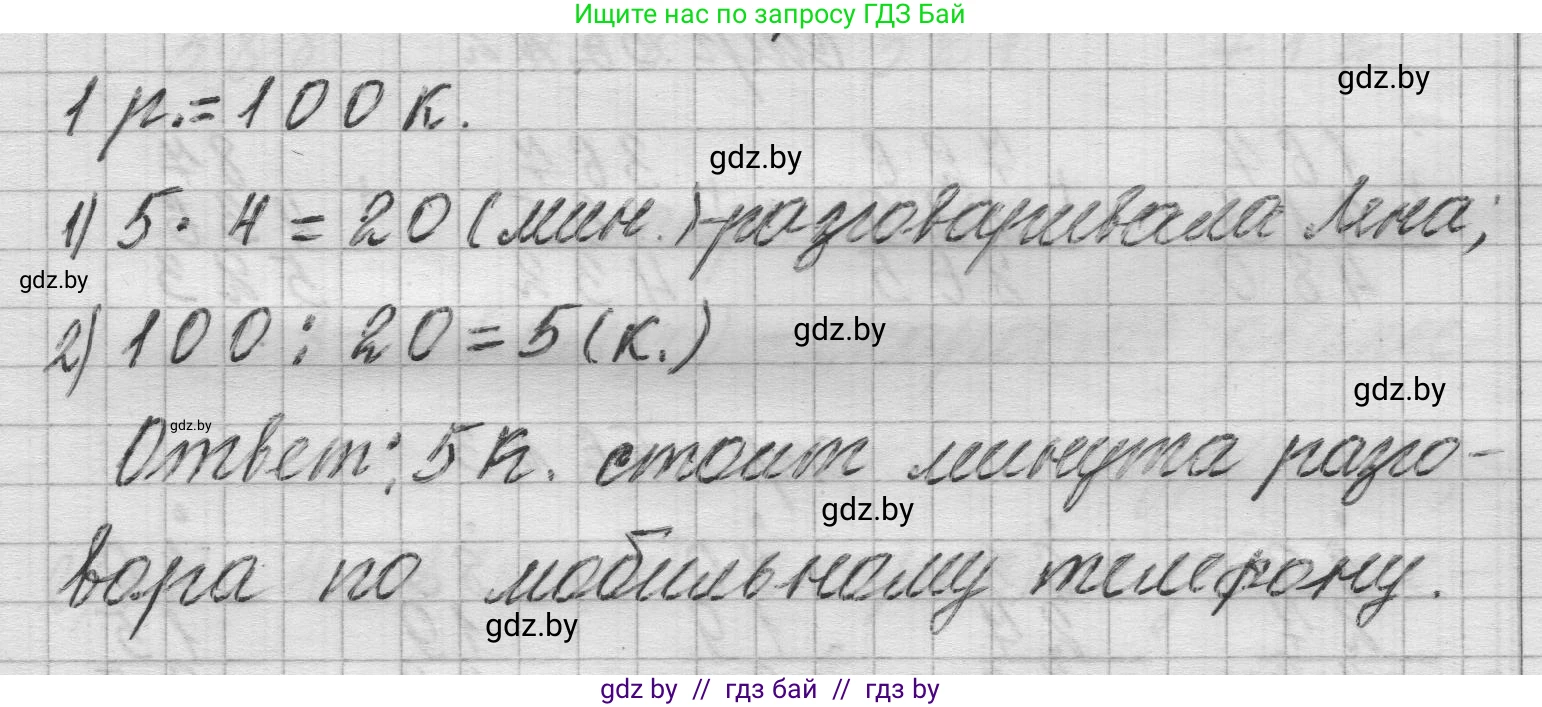 Ищите нас по запросу ГДЗ Бай
1 р. = 100 к.
gdz.by
gdz.by
1) 5 · 4 = 20 (мин.) - разговаривала Лена;
gdz.by
2) 100 : 20 = 5 (к.)
gdz.by
gdz.by
gdz.by
Ответ: 5 к. стоит минута разго-
gdz.by
вора по мобильному телефону.
gdz.by
gdz by // гдз бай // гдз by